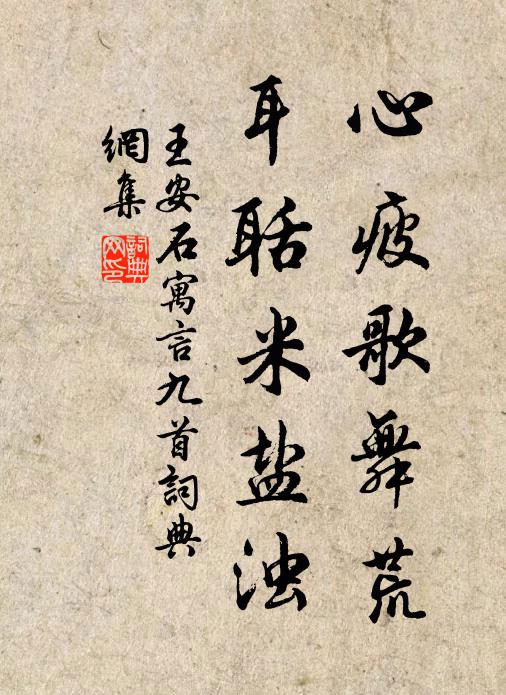 心疲歌舞荒
耳聒米盐浊
王安石寓言九首詞典
網集
詞典网印